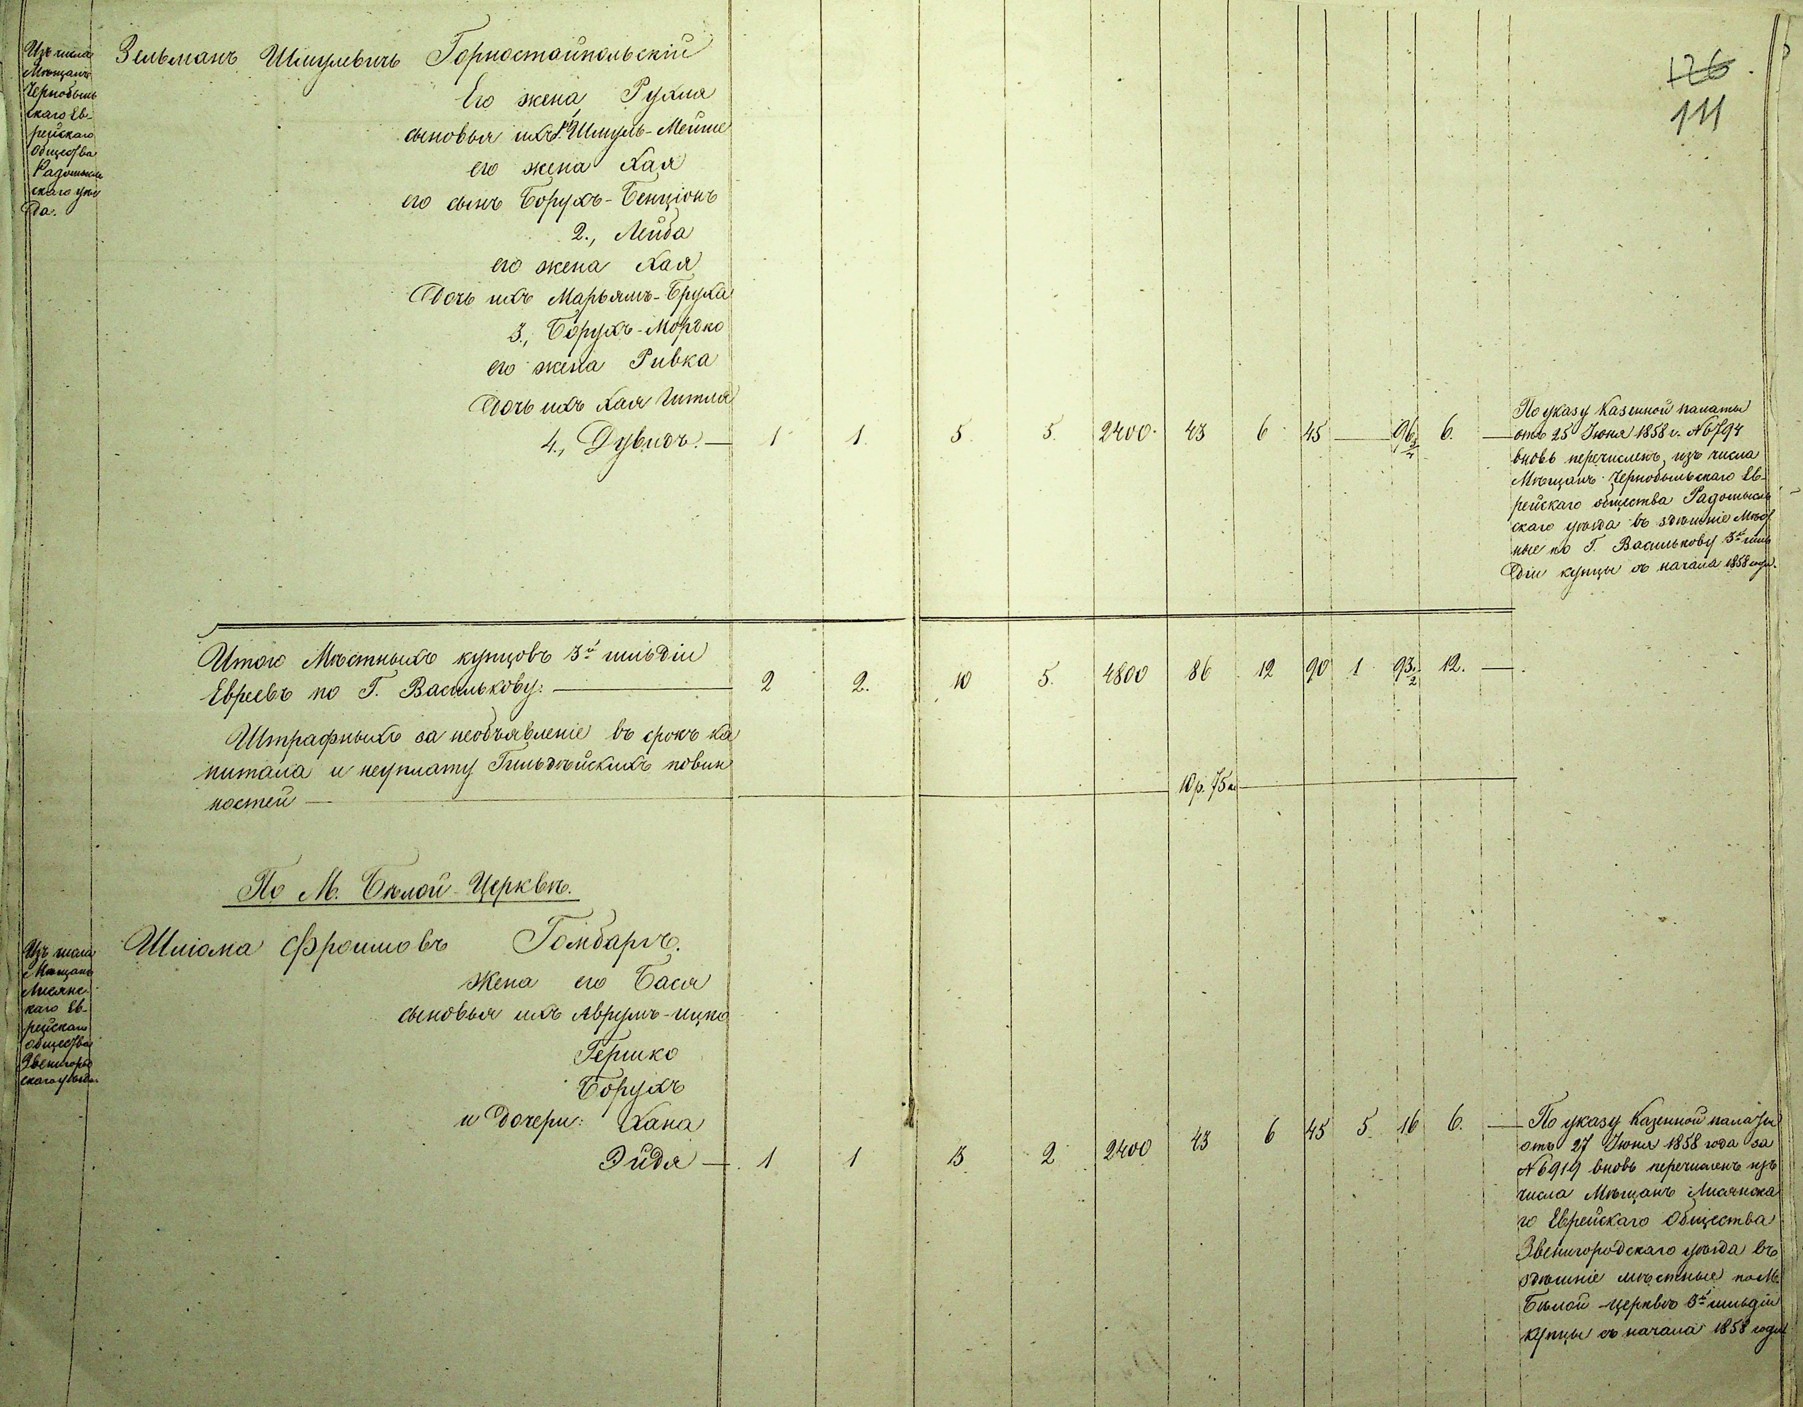 126
111
Изъ числа
Мѣщанъ
Чернобыль
скаго Ев-
рейскаго
Общества
Радомысль
скаго уѣз
да.
Зельманъ Шмулевичъ Горностайпольскій
Его жена Рухля
сыновья ихъ 1, Шмуль-Мейше
его жена Хая
его сынъ Борухъ-Бенціонъ
2., Лейба
его жена Хая
Дочь ихъ Марьямъ-Бруха
3., Борухъ-Мордко
его жена Ривка
Дочь ихъ Хая Гитля
4., Дувидъ. — 1 1. 5. 5. 2400. 43 6 45 — 96 6. —
По указу Казенной палаты
отъ 25 Іюня 1858 г. № 6794
вновь перечисленъ изъ числа
Мѣщанъ Чернобыльскаго Ев-
рейскаго общества Радомысль
скаго уѣзда въ здѣшніе Мѣст
ные по Г. Василькову 3й гиль
діи купцы съ начала 1858 года.
Итого Мѣстныхъ купцовъ 3й гильдіи
Евреевъ по Г. Василькову. — 2 2. 10 5. 4800 86 12 90 1 93 1/2 12. —
Штрафныхъ за необъявленіе въ срокъ ка
питала и неуплату Гильдейскихъ повин
ностей — 10 р. 75 к
По М. Бѣлой-Церквѣ.
Изъ числа
Мѣщанъ
Лисянс-
каго Ев-
рейскаго
общества
Звенигород
скаго уѣзда.
Шліома Фроимовъ Гомбаргъ.
Жена его Бася
сыновья ихъ Аврумъ-Ицко
Гершко
Борухъ
и Дочери: Хана
Эйдя — 1 1 3 2 2400 43 6 45 5 16 6. —
По указу Казенной палаты
отъ 27 Іюня 1858 года за
№ 6919 вновь перечисленъ изъ
числа Мѣщанъ Лисянска
го Еврейскаго Общества
Звенигородскаго уѣзда въ
здѣшніе мѣстные по М.
Бѣлой-Церквѣ 3й гильдіи
купцы съ начала 1858 года